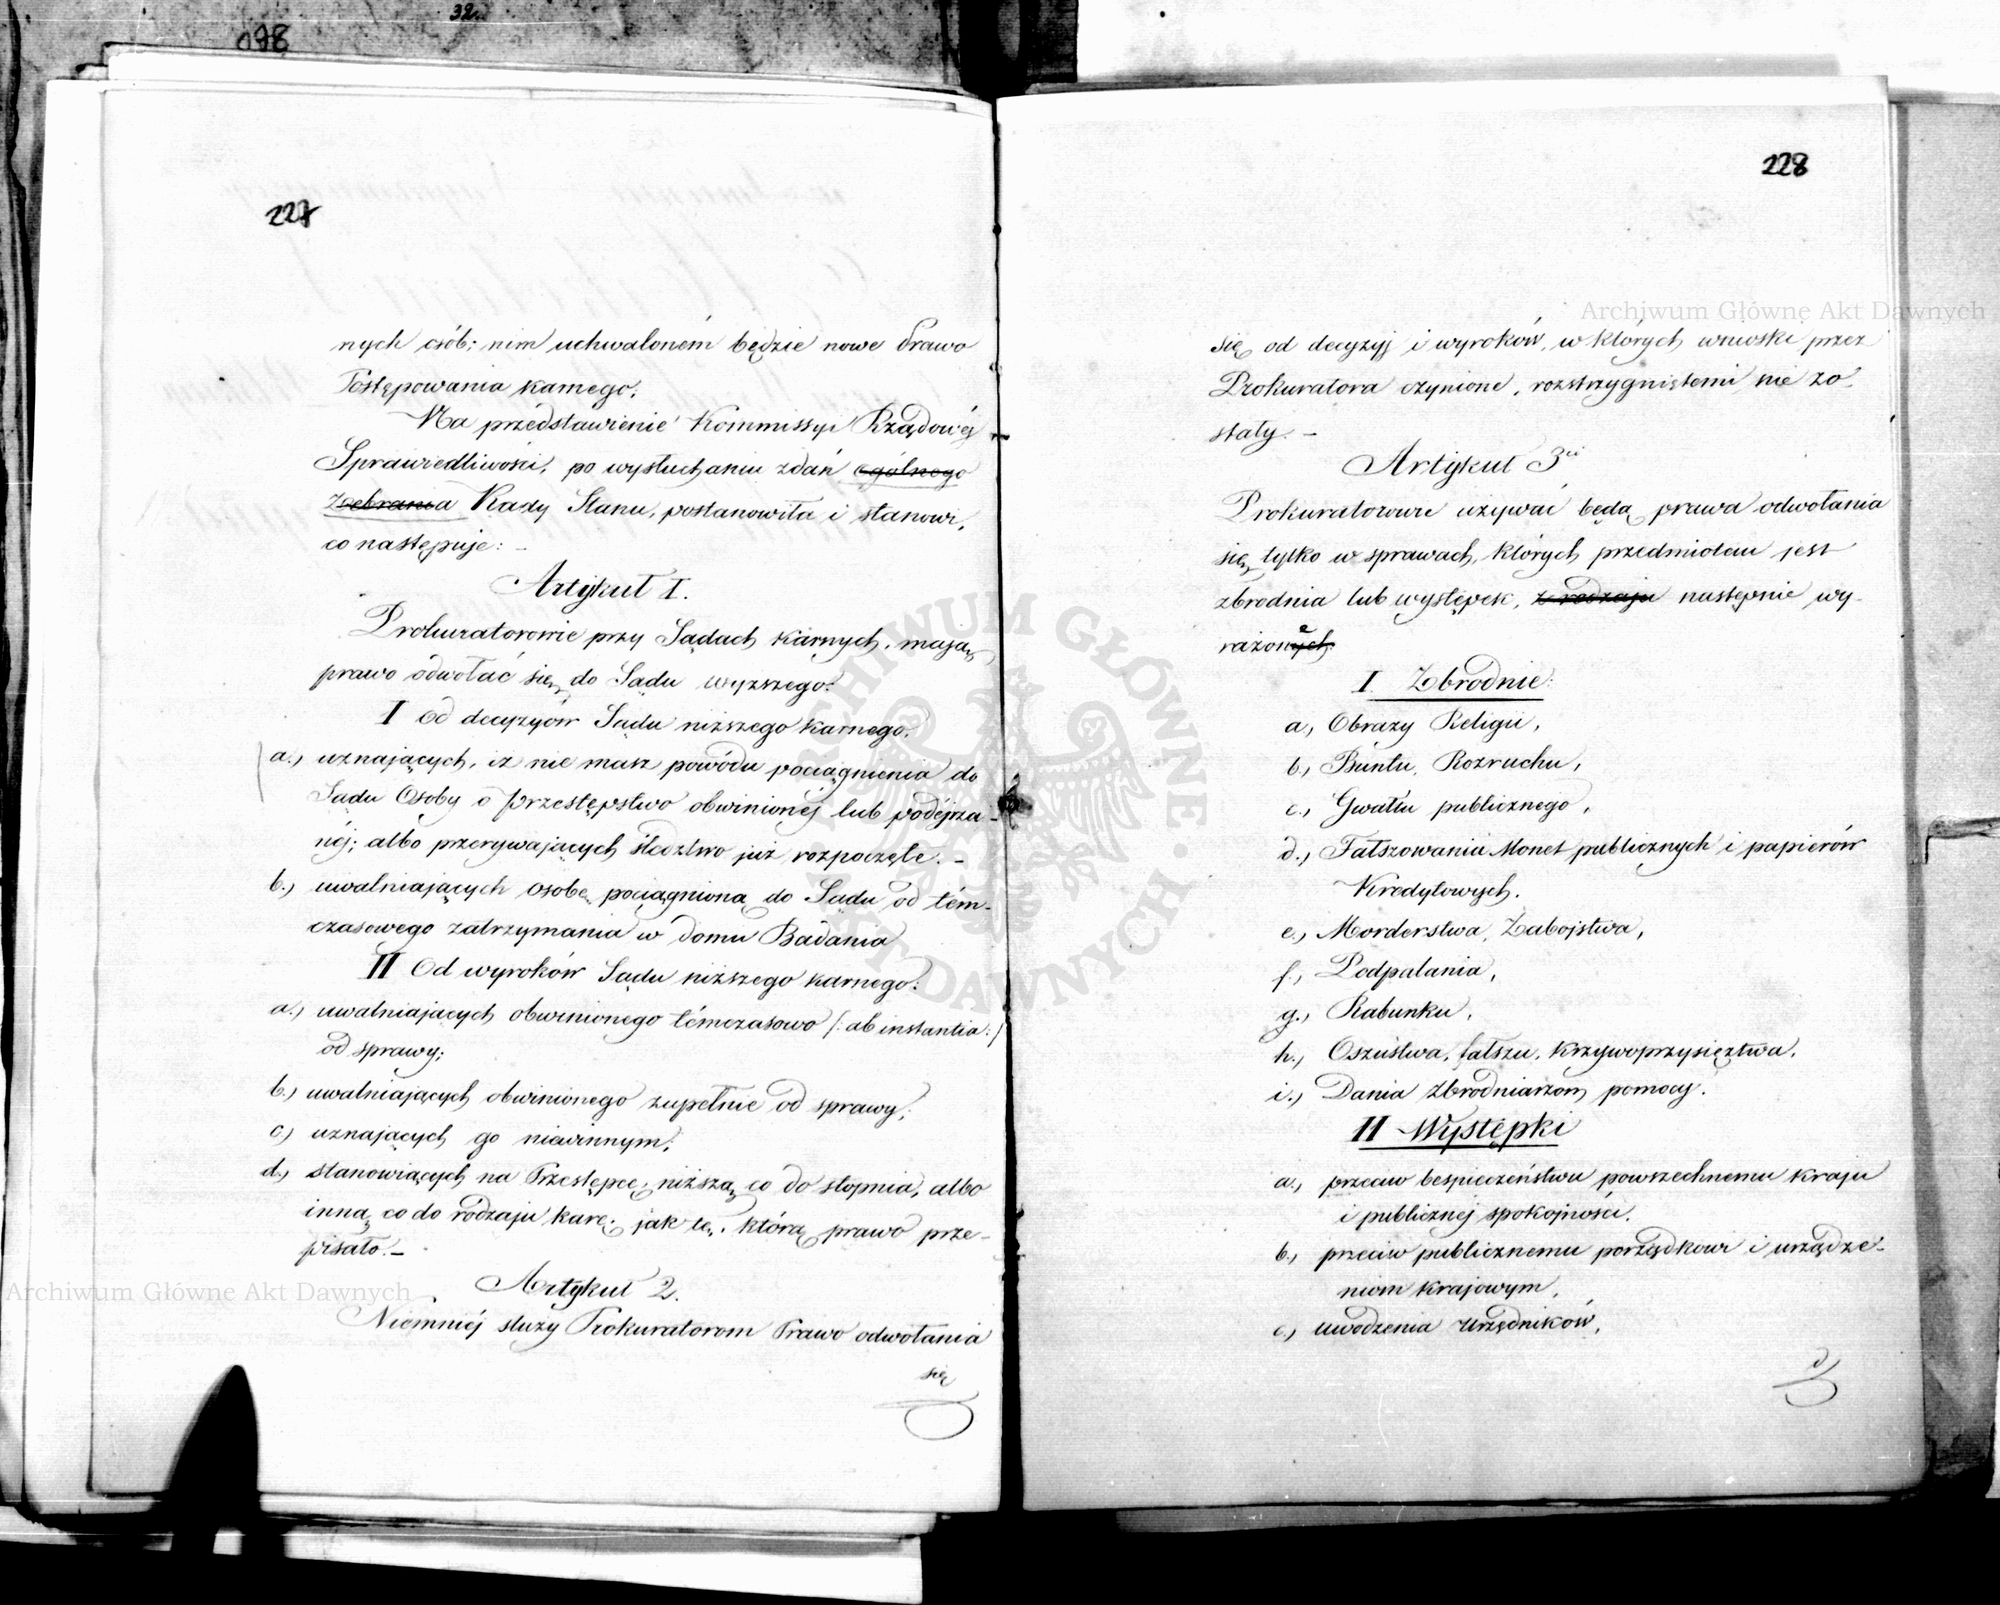 32.
098
227
nych osób; nim uchwalonem będzie nowe Prawo
Postępowania karnego;
Na przedstawienie Kommissyi Rządowéj
Sprawiedliwości, po wysłuchaniu zdań ogólnego
Zebrania Rady Stanu, postanowiła i stanowi,
co następuje: _
Artykuł I.
Prokuratorowie przy Sądach karnych, mają
prawo odwołać się, do Sądu wyższego:
I od decyzyów Sądu niższego karnego;
a.) uznających, iż nie masz powodu pociągnienia do
Sądu Osoby o przestępstwo obwinionéj lub podéjrza-
néj; albo przerywających śledztwo już rozpoczęte. _
b.) uwalniających osobę, pociągnioną do Sądu od tém-
czasowego zatrzymania w domu Badania
II Od wyroków Sądu niższego karnego:
a.) uwalniających obwinionego témczasowo /: ab instantia :/
od sprawy;
b.) uwalniających obwinionego zupełnie od sprawy;
c.) uznających go niewinnym;
d.) stanowiących na Przestępcę, niższą co do stopnia, albo
inną co do rodzaju karę; jak tę, którą prawo prze-
pisało. _
Artykuł 2.
Niemniéj służy Prokuratorom Prawo odwołania
się
228
się od decyzyj i wyroków, w których wnioski przez
Prokuratora czynione, rozstrzygniętemi nie zo-
stały. _
Artykuł 3ci
Prokuratorowie używać będą prawa odwołania
się, tylko w sprawach, których przedmiotem jest
zbrodnia lub występek, z rodzaju następnie wy-
rażonych e
I. Zbrodnie:
a., Obrazy Religii,
b., Buntu, Rozruchu,
c., Gwałtu publicznego,
d., Fałszowania Monet publicznych i papierów
Kredytowych.
e., Morderstwa, Zabojstwa,
f., Podpalania,
g., Rabunku,
h., Oszustwa, fałszu, krzywoprzysięztwa,
i., Dania Zbrodniarzom pomocy.
II Występki
a., przeciw bespieczeństwu powszechnemu kraju
i publicznéj spokojności,
b., przeciw publicznemu porządkowi i urządze-
niom krajowym,
c., uwodzenia Urzędników,
d)
Archiwum Główne Akt Dawnych
Archiwum Główne Akt Dawnych
ARCHIWUM GŁÓWNE · AKT DAWNYCH ·